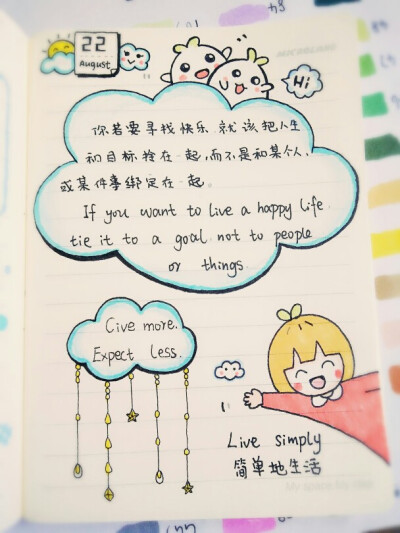 22
August
Hi
你若要寻找快乐.就该把人生
和目标拴在一起,而不是和某个人.
或某件事绑定在一起.
If you want to live a happy life.
tie it to a goal not to people
or things.
Give more.
Expect less.
Live simply
简单地生活